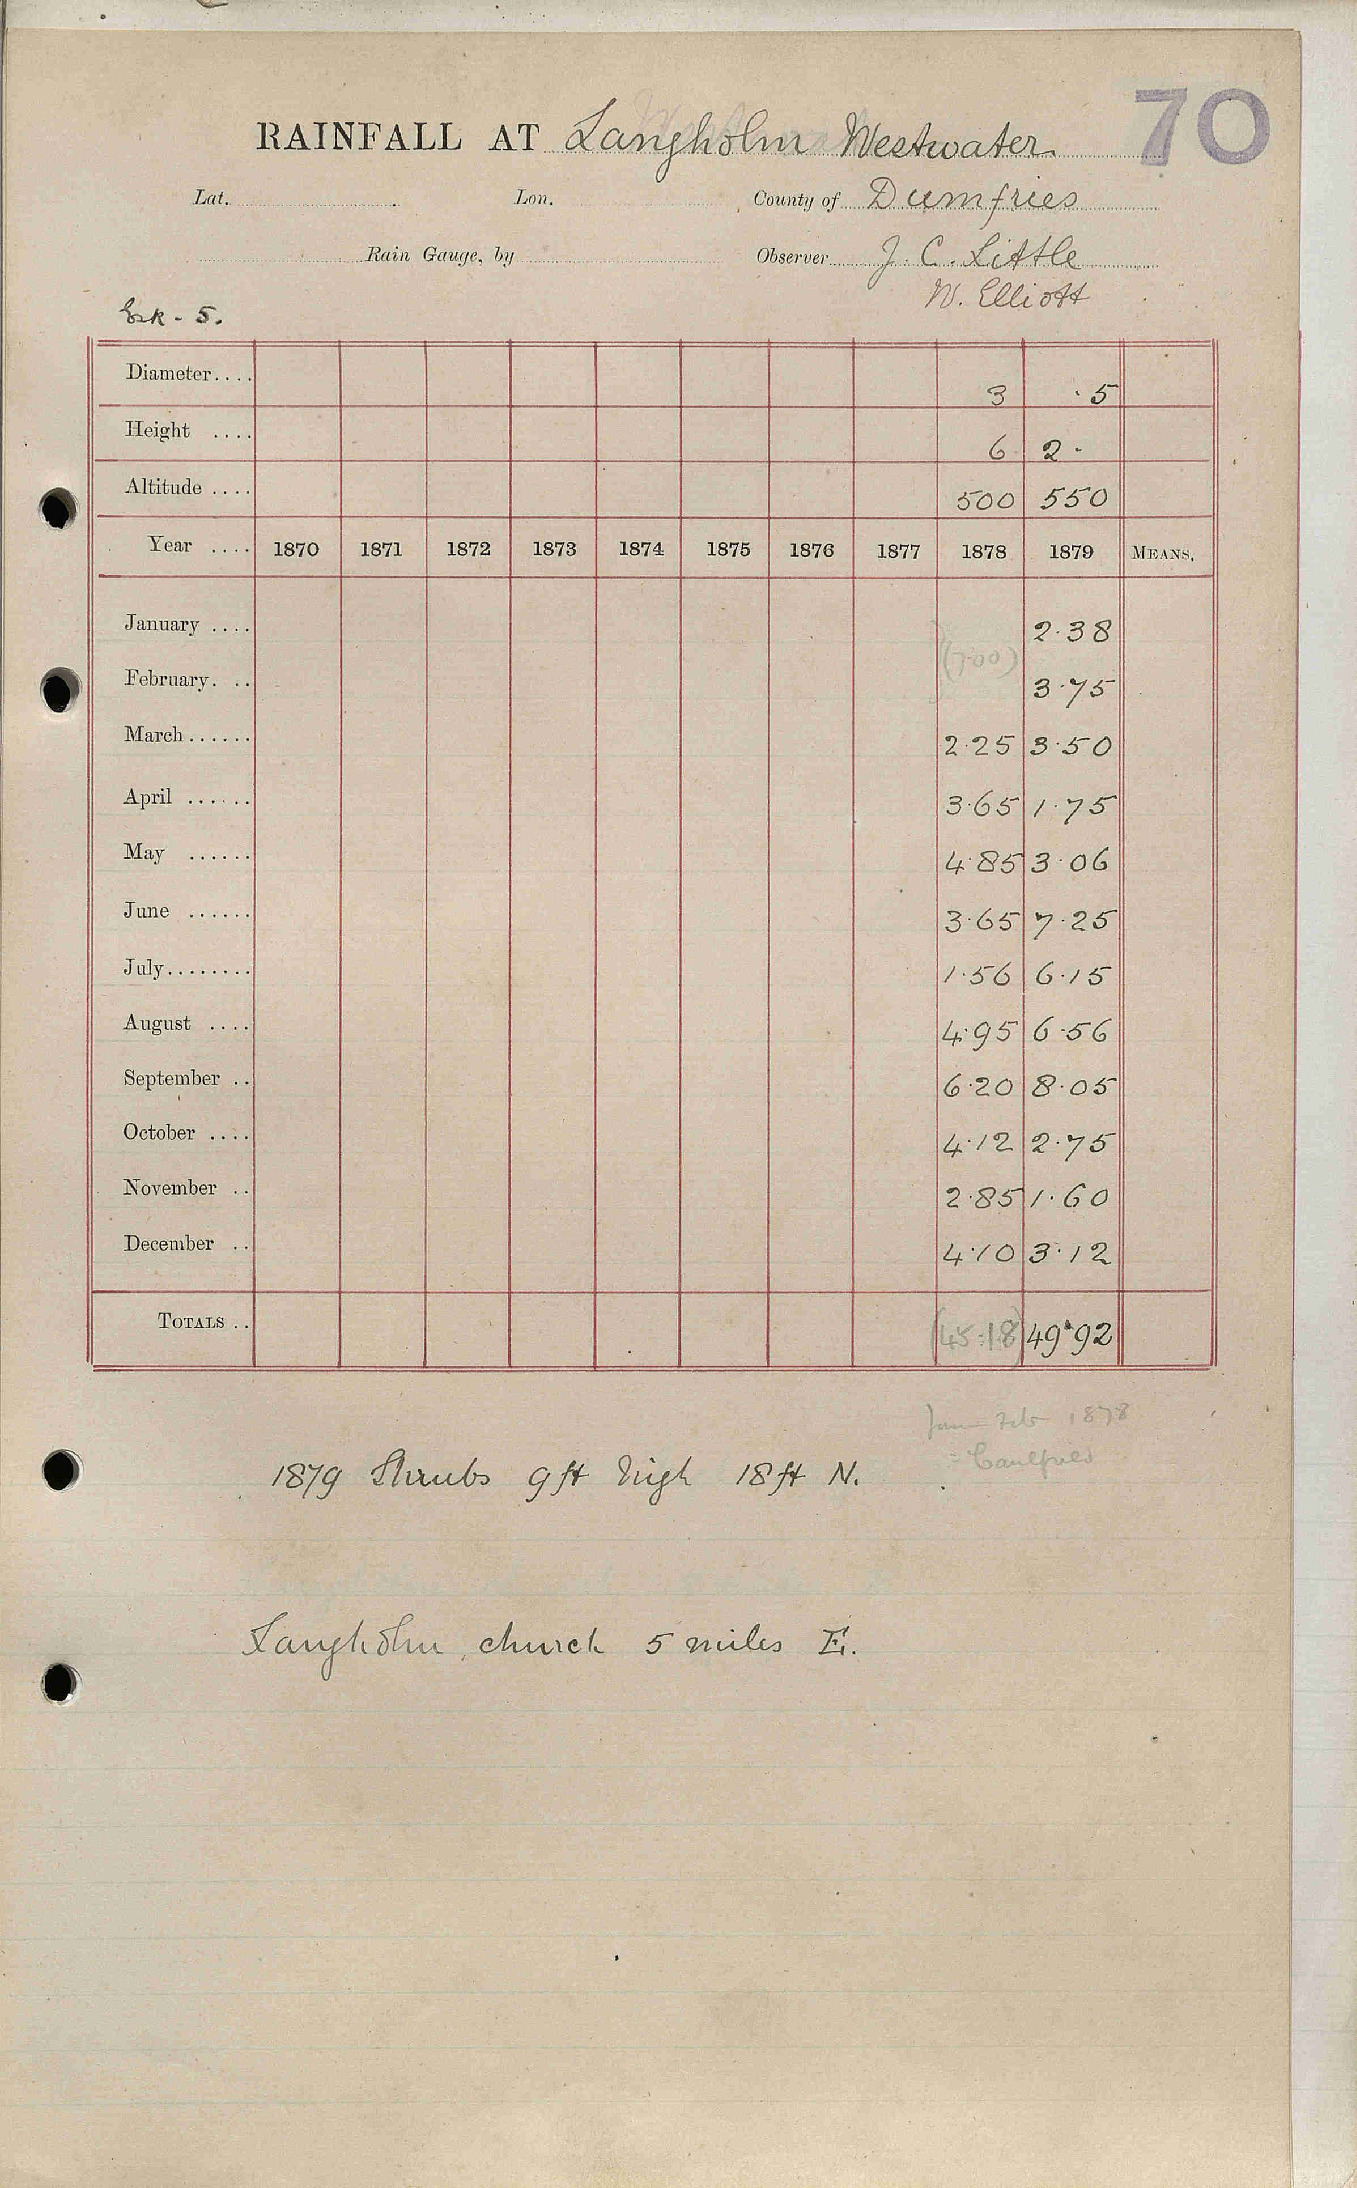 70
RAINFALL AT Langholm Westwater
Lat. Lon. County of Dumfries
Rain Gauge, by Observer J. C. Little
W. Elliott
Esk - 5.
Diameter.... 3 · 5
Height .... 6 2 ·
Altitude .... 500 550
Year .... 1870 1871 1872 1873 1874 1875 1876 1877 1878 1879 MEANS.
January .... 2·38
(7·00)
February. .. 3·75
March...... 2·25 3·50
April ...... 3·65 1·75
May ...... 4·85 3·06
June ...... 3·65 7·25
July........ 1·56 6·15
August .... 4·95 6·56
September .. 6·20 8·05
October .... 4·12 2·75
November .. 2·85 1·60
December .. 4·10 3·12
TOTALS .. (45·18) 49·92
Jan Feb 1878
1879 Shrubs 9 ft high 18 ft N.
Langholm church 5 miles E.